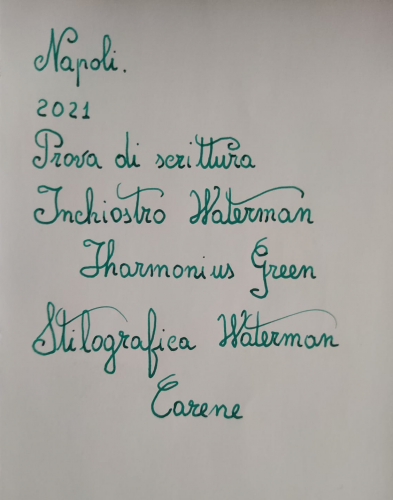 Napoli.
2021
Prova di scrittura
Inchiostro Waterman
Iharmonius Green
Stilografica Waterman
Carene